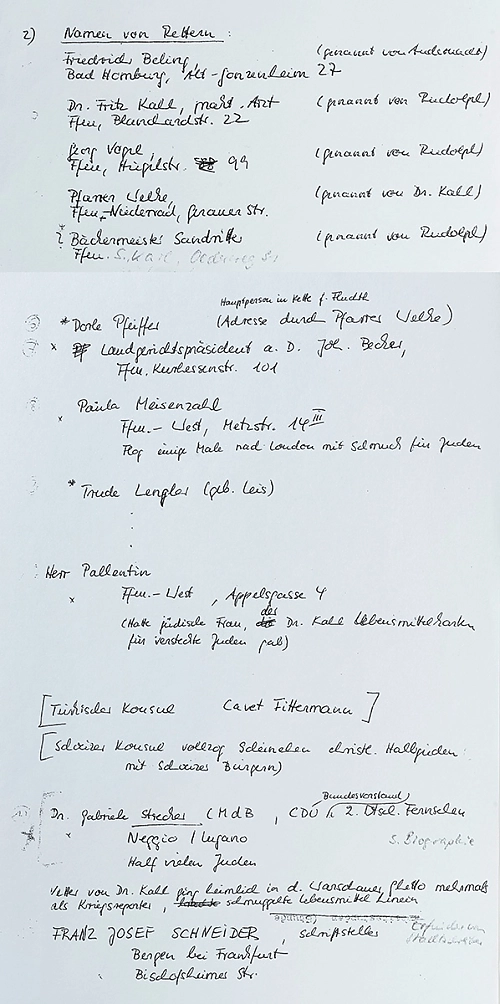 2) Namen von Rettern:
Friedrich Beling, (genannt von
Bad Homburg, Alt-Gonzenheim 27
Dr. Fritz Kahl, prakt. Arzt (genannt von Rudolph)
Ffm, Blanchardstr. 22
Georg Vogel, (genannt von Rudolph)
Ffm, Hügelstr. 99
Pfarrer Welke (genannt von Dr. Kahl)
Ffm.-Niederrad, Gerauer Str.
? Bäckermeister Sandritter (genannt von Rudolph)
Ffm.
Hauptperson in Kette f. Flucht
* Dorle Pfeiffer (Adresse durch Pfarrer Welke)
x Landgerichtspräsident a. D. Joh. Becker,
Ffm. Kurhessenstr. 101
Paula Meisenzahl
x Ffm.-West, Metzstr. 14 III
Flog einige Male nach London mit Schmuck für Juden
* Trude Lengler (geb. Leis)
Herr Pallentin
x Ffm.-West, Appelsgasse 4
(Hatte jüdische Frau, der Dr. Kahl Lebensmittelkarten
für versteckte Juden gab)
[Türkischer Konsul Cavet Fittermann]
[Schweizer Konsul vollzog Scheinehen christl. Halbjüden
mit Schweizer Bürgern)
Bundesvorstand
Dr. Gabriele Strecker (MdB, CDU, 2. Dtsch. Fernsehen
x Neggio / Lugano s. Biographie
Half vielen Juden
Vetter von Dr. Kahl ging heimlich in d. Warschauer Ghetto mehrmals
als Kriegsreporter, schmuggelte Lebensmittel hinein
FRANZ JOSEF SCHNEIDER, Schriftsteller
Bergen bei Frankfurt
Bischofsheimer Str.